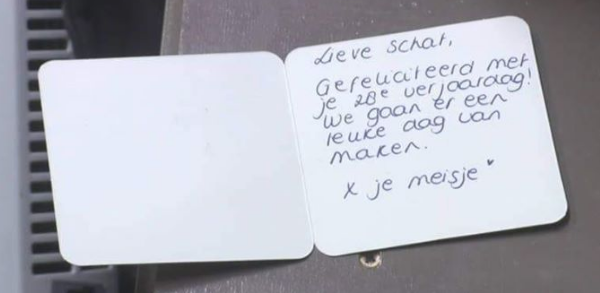 Lieve schat,
Gefeliciteerd met
je 28e verjaardag!
We gaan er een
leuke dag van
maken.
x je meisje